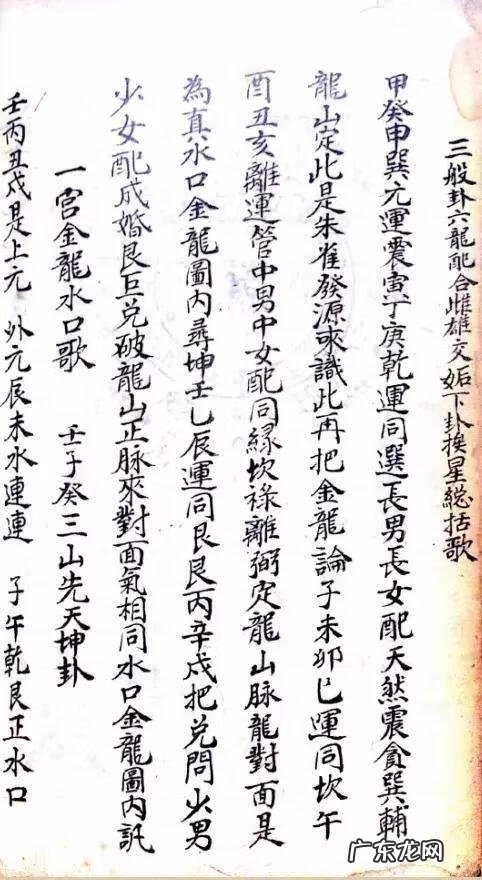 三般卦六龍配合雌雄交姤下卦挨星總括歌
甲癸申巽亢運震寅丁庚乾運同選長男長女配天然震貪巽輔
龍山定此是朱雀發源來識此再把金龍論子未卯巳運同坎午
酉丑亥離運管中男中女配同緣坎祿離弼定龍山脉龍對面是
為真水口金龍圖內尋坤壬乙辰運同艮艮丙辛戍把兌問少男
少女配成婚艮巨兌破龍山正脉來對面氣相同水口金龍圖內訊
一宮金龍水口歌 壬子癸三山先天坤卦
壬丙丑戍是上元 外元辰未水連連 子午乾艮正水口
广东龙网